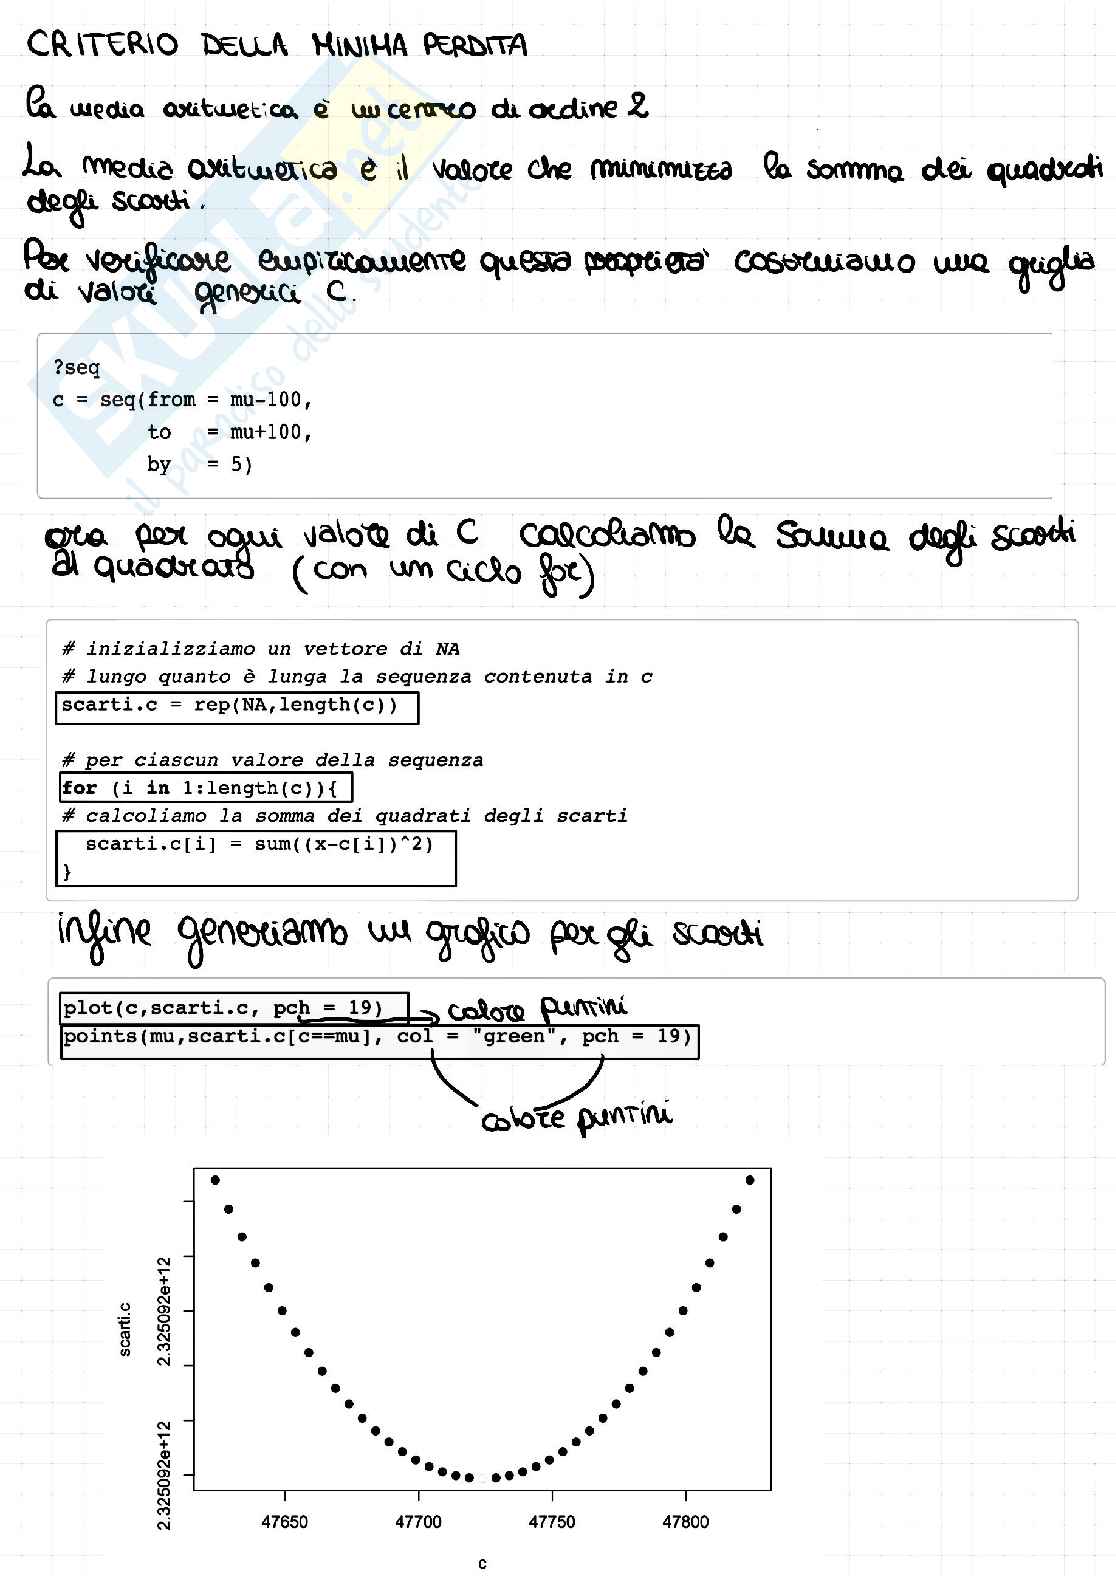 CRITERIO DELLA MINIMA PERDITA
La media aritmetica è un centro di ordine 2
La media aritmetica è il valore che minimizza la somma dei quadrati
degli scarti.
Per verificare empiricamente questa proprietà costruiamo una griglia
di valori generici C.
?seq
c = seq(from = mu-100,
to = mu+100,
by = 5)
ora per ogni valore di C calcoliamo la somma degli scarti
al quadrato (con un ciclo for)
# inizializziamo un vettore di NA
# lungo quanto è lunga la sequenza contenuta in c
scarti.c = rep(NA,length(c))
# per ciascun valore della sequenza
for (i in 1:length(c)){
# calcoliamo la somma dei quadrati degli scarti
scarti.c[i] = sum((x-c[i])^2)
}
infine generiamo un grafico per gli scarti
plot(c,scarti.c, pch = 19) colore puntini
points(mu,scarti.c[c==mu], col = "green", pch = 19)
colore puntini
scarti.c
2.325092e+12
2.325092e+12
47650 47700 47750 47800
c
SKUOLA.net
il paradiso dello studente